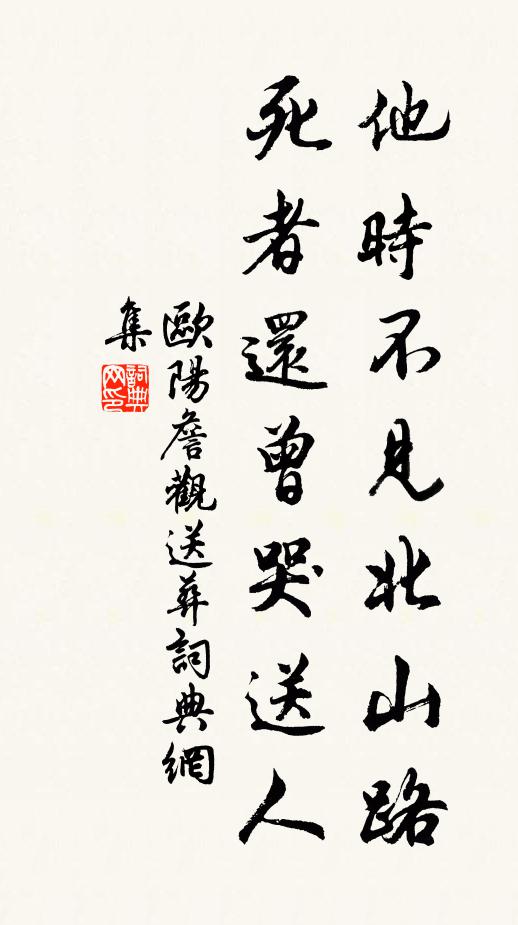 他時不見北山路
死者還曾哭送人
歐陽詹觀送葬詞典網
集
詞典
网印